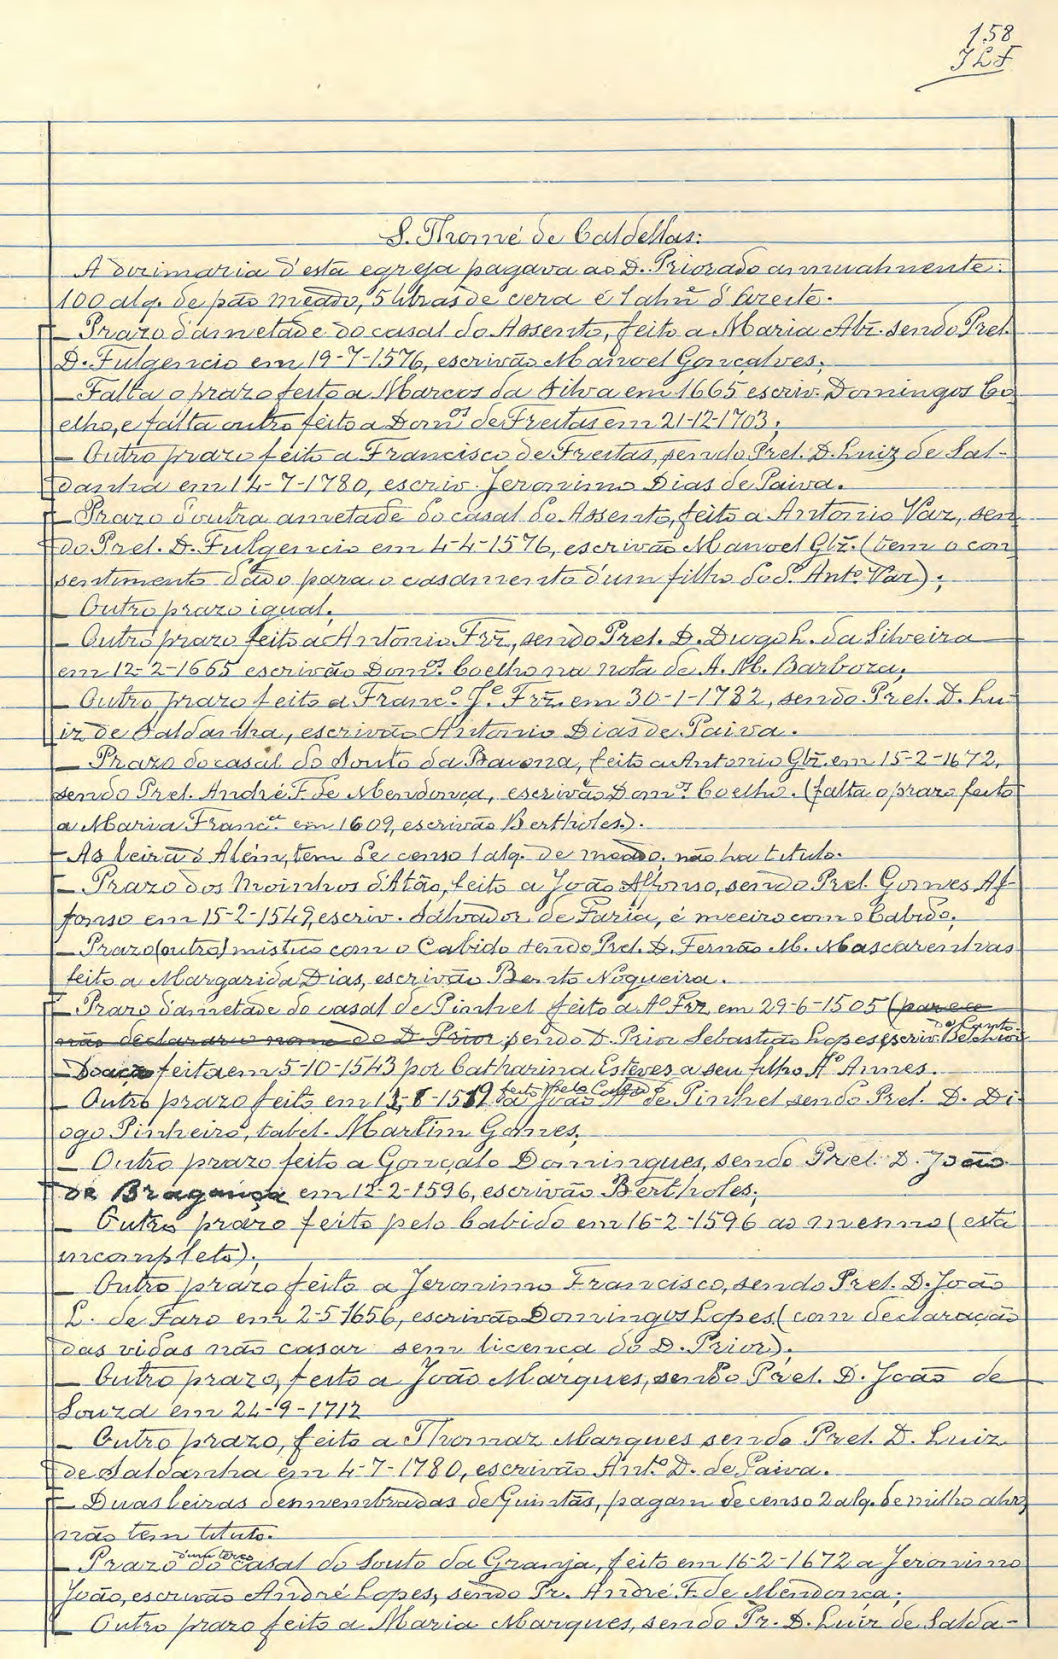 158
JLF
S. Thomé de Caldellas:
A dizimaria d'esta egreja pagava ao D. Priorado annualmente:
100 alq. de pão meado, 5 libras de cera e 1 alm.e d'Azeite.
— Prazo d'ametade do casal do Assento, feito a Maria Alz. sendo Prel.
D. Fulgencio em 19-7-1576, escrivão Manoel Gonçalves;
— Falta o prazo feito a Marcos da Silva em 1665 escriv. Domingos Co
elho, e falta outro feito a Dom.os de Freitas em 21-12-1703;
— Outro prazo feito a Francisco de Freitas, sendo Prel. D. Luiz de Sal-
danha em 14-7-1780, escriv. Jeronimo Dias de Paiva.
— Prazo d'outra ametade do casal do Assento, feito a Antonio Vaz, sen
do Prel. D. Fulgencio em 4-4-1576, escrivão Manoel Glz. (tem o con
sentimento dado para o casamento d'um filho do d.o Ant.o Vaz);
— Outro prazo igual.
— Outro prazo feito a Antonio Frz., sendo Prel. D. Diogo L. da Silveira
em 12-2-1665 escrivão Dom.os Coelho na nota de A. M. Barboza;
— Outro prazo feito a Franc.o J.e Frz. em 30-1-1782, sendo Prel. D. Lu-
iz de Saldanha, escrivão Antonio Dias de Paiva.
— Prazo do casal do Souto da Bavona, feito a Antonio Glz. em 15-2-1672,
sendo Prel. André F. de Mendonça, escrivão Dom.os Coelho. (falta o prazo feito
a Maria Franc.ca em 1609, escrivão Bertholes.).
— As leiras d'Além, tem de censo 1 alq. de meado, não ha titulo.
— Prazo dos Moinhos d'Atão, feito a João Affonso, sendo Prel. Gomes Af-
fonso em 15-2-1549, escriv. Salvador de Faria, é meeiro com o Cabido;
— Prazo (outro) mistico com o Cabido sendo Prel. D. Fernão M. Mascarenhas
feito a Margarida Dias, escrivão Bento Nogueira.
— Prazo d'ametade do casal de Pinhel feito a A.o Frz. em 29-6-1505 (parece
não declarar o nome do D. Prior sendo D. Prior Sebastião Lopes, escriv. Belchior
do Canto.
— Doação feita em 5-10-1543 por Catharina Esteves a seu filho A.o Annes.
— Outro prazo feito em 12-8-1519 feito pelo Cabido a João A.o de Pinhel sendo Prel. D. Di-
ogo Pinheiro, tabel. Martim Gomes;
— Outro prazo feito a Gonçalo Domingues, sendo Prel. D. João
de Bragança em 12-2-1596, escrivão Bertholes;
— Outro prazo feito pelo Cabido em 16-2-1596 ao mesmo (está
incompleto);
— Outro prazo feito a Jeronimo Francisco, sendo Prel. D. João
L. de Faro em 2-5-1656, escrivão Domingos Lopes (com declaração
das vidas não casar sem licença do D. Prior);
— Outro prazo, feito a João Marques, sendo Prel. D. João de
Souza em 24-9-1712
— Outro prazo, feito a Thomaz Marques sendo Prel. D. Luiz
de Saldanha em 4-7-1780, escrivão Ant.o D. de Paiva.
— Duas leiras desmembradas de Guintãs, pagam de censo 2 alq. de milho alvo,
não tem titulo.
— Prazo d'um terço do casal do Souto da Granja, feito em 16-2-1672 a Jeronimo
João, escrivão André Lopes, sendo Pr. André F. de Mendonça;
— Outro prazo feito a Maria Marques, sendo Pr. D. Luiz de Salda-